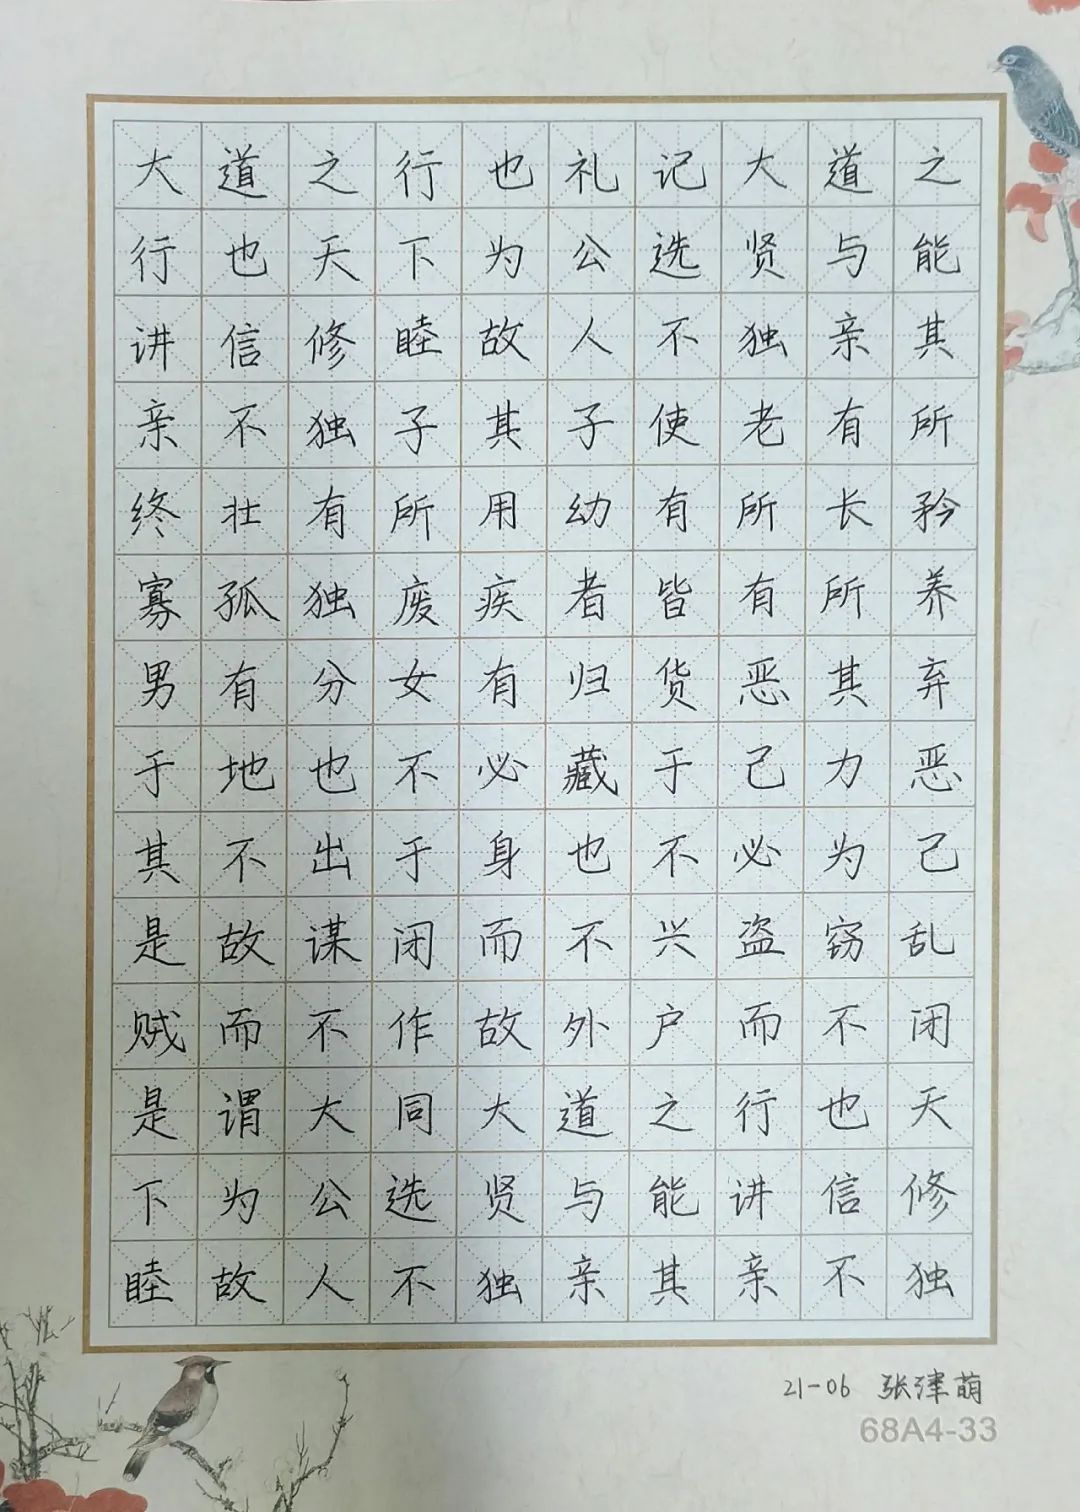 大道之行也礼记大道之
行也天下为公选贤与能
讲信修睦故人不独亲其
亲不独子其子使老有所
终壮有所用幼有所长矜
寡孤独废疾者皆有所养
男有分女有归货恶其弃
于地也不必藏于己力恶
其不出于身也不必为己
是故谋闭而不兴盗窃乱
贼而不作故外户而不闭
是谓大同大道之行也天
下为公选贤与能讲信修
睦故人不独亲其亲不独
21-06 张津萌
68A4-33